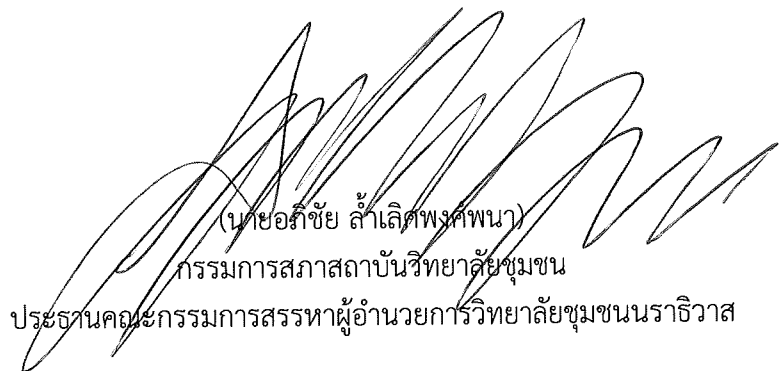 (นายอภิชัย ล้ำเลิศพงศ์พนา)
กรรมการสภาสถาบันวิทยาลัยชุมชน
ประธานคณะกรรมการสรรหาผู้อำนวยการวิทยาลัยชุมชนนราธิวาส